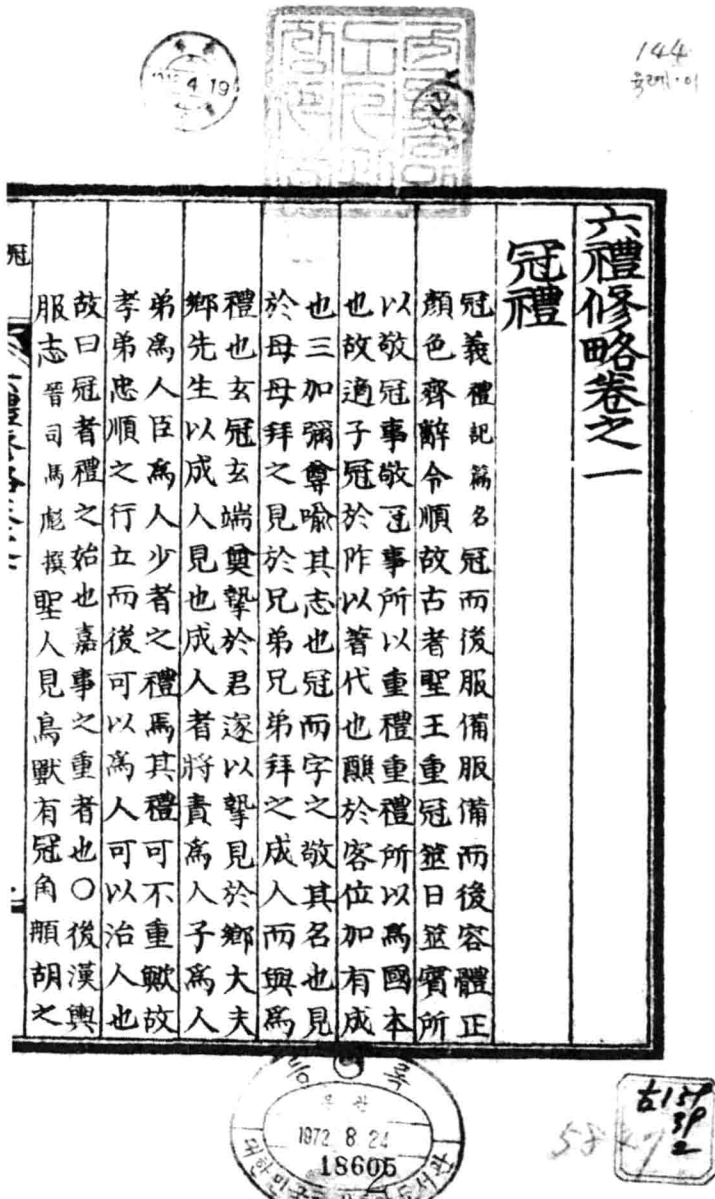 六禮修略卷之一
冠禮
冠義禮記篇名冠而後服備服備而後容體正
顏色齊辭令順故古者聖王重冠筮日筮賓所
以敬冠事敬冠事所以重禮重禮所以爲國本
也故適子冠於阼以著代也醮於客位加有成
也三加彌尊喩其志也冠而字之敬其名也見
於母母拜之見於兄弟兄弟拜之成人而與爲
禮也玄冠玄端奠摯於君遂以摯見於鄉大夫
鄉先生以成人見也成人者將責爲人子爲人
弟爲人臣爲人少者之禮焉其禮可不重歟故
孝弟忠順之行立而後可以爲人可以治人也
故曰冠者禮之始也嘉事之重者也○後漢輿
服志晉司馬彪撰聖人見鳥獸有冠角䫇胡之
冠
144
육례·01
4 19
등록
1972 8 24
18605
대한민국
도서관
古159
39
2
58